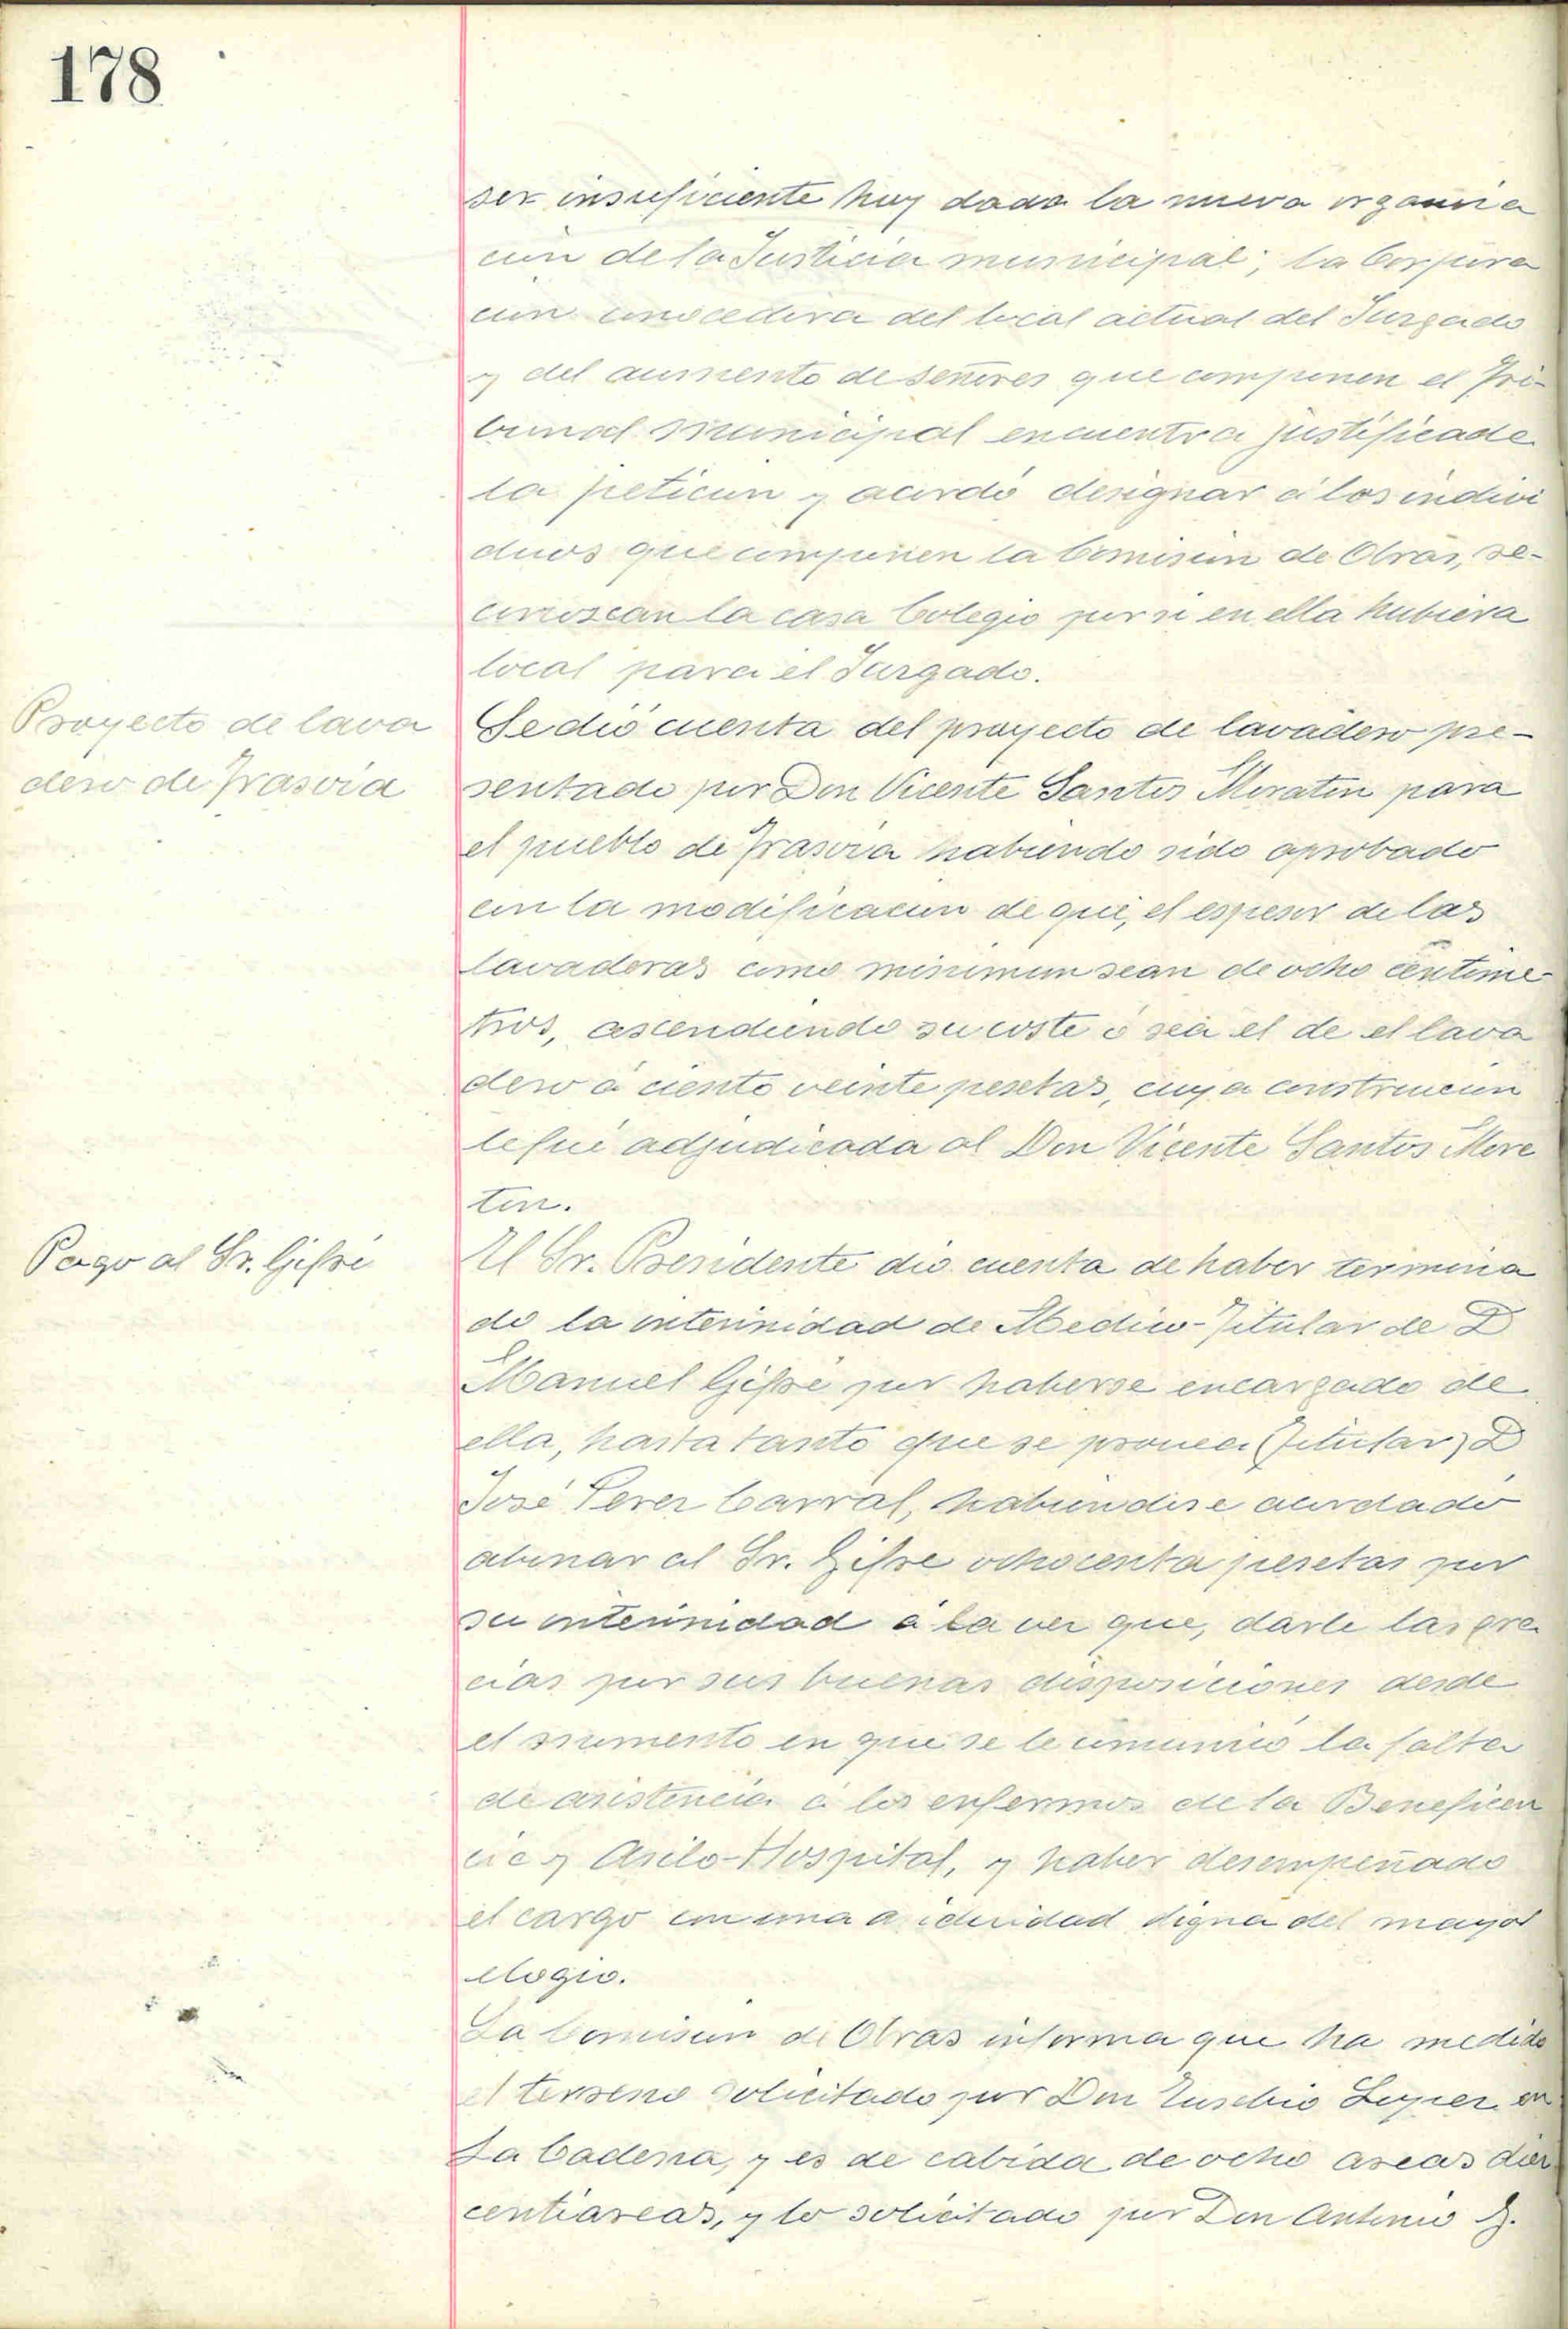 178
ser insuficiente hoy dada la nueva organiza
ción de la Justicia municipal; la Corpora
ción conocedora del local actual del Juzgado
y del aumento de señores que componen el Tri-
bunal municipal encuentra justificada
la petición y acordó designar á los indivi
duos que componen la Comisión de Obras, re-
conozcan la casa Colegio por si en ella hubiera
local para el Juzgado.
Proyecto de lava
dero de Trasvia
Se dió cuenta del proyecto de lavadero pre-
sentado por Don Vicente Santos Moratin para
el pueblo de Trasvia habiendo sido aprobado
con la modificación de que, el espesor de las
lavaderas como minimun sean de ocho centime-
tros, ascendiendo su coste ó sea el de el lava
dero á ciento veinte pesetas, cuya construcción
le fué adjudicada al Don Vicente Santos More
tin.
Pago al Sr. Gifré
El Sr. Presidente dió cuenta de haber termina
do la interinidad de Medico-Titular de D
Manuel Gifré por haberse encargado de
ella, hasta tanto que se provea (Titular) D
José Perez Carral, habiendose acordado
abonar al Sr. Gifre ochocenta pesetas por
su interinidad á la vez que, darle las gra
cias por sus buenas disposiciones desde
el momento en que se le comunicó la falta
de asistencia á los enfermos de la Beneficen
cia y Asilo-Hospital, y haber desempeñado
el cargo con una digna del mayor
elogio.
La Comisión de Obras informa que ha medido
el terreno solicitado por Don Eusebio Lopez en
La Cadena, y es de cabida de ocho areas diez
centiareas, y lo solicitado por Don Antonio G.